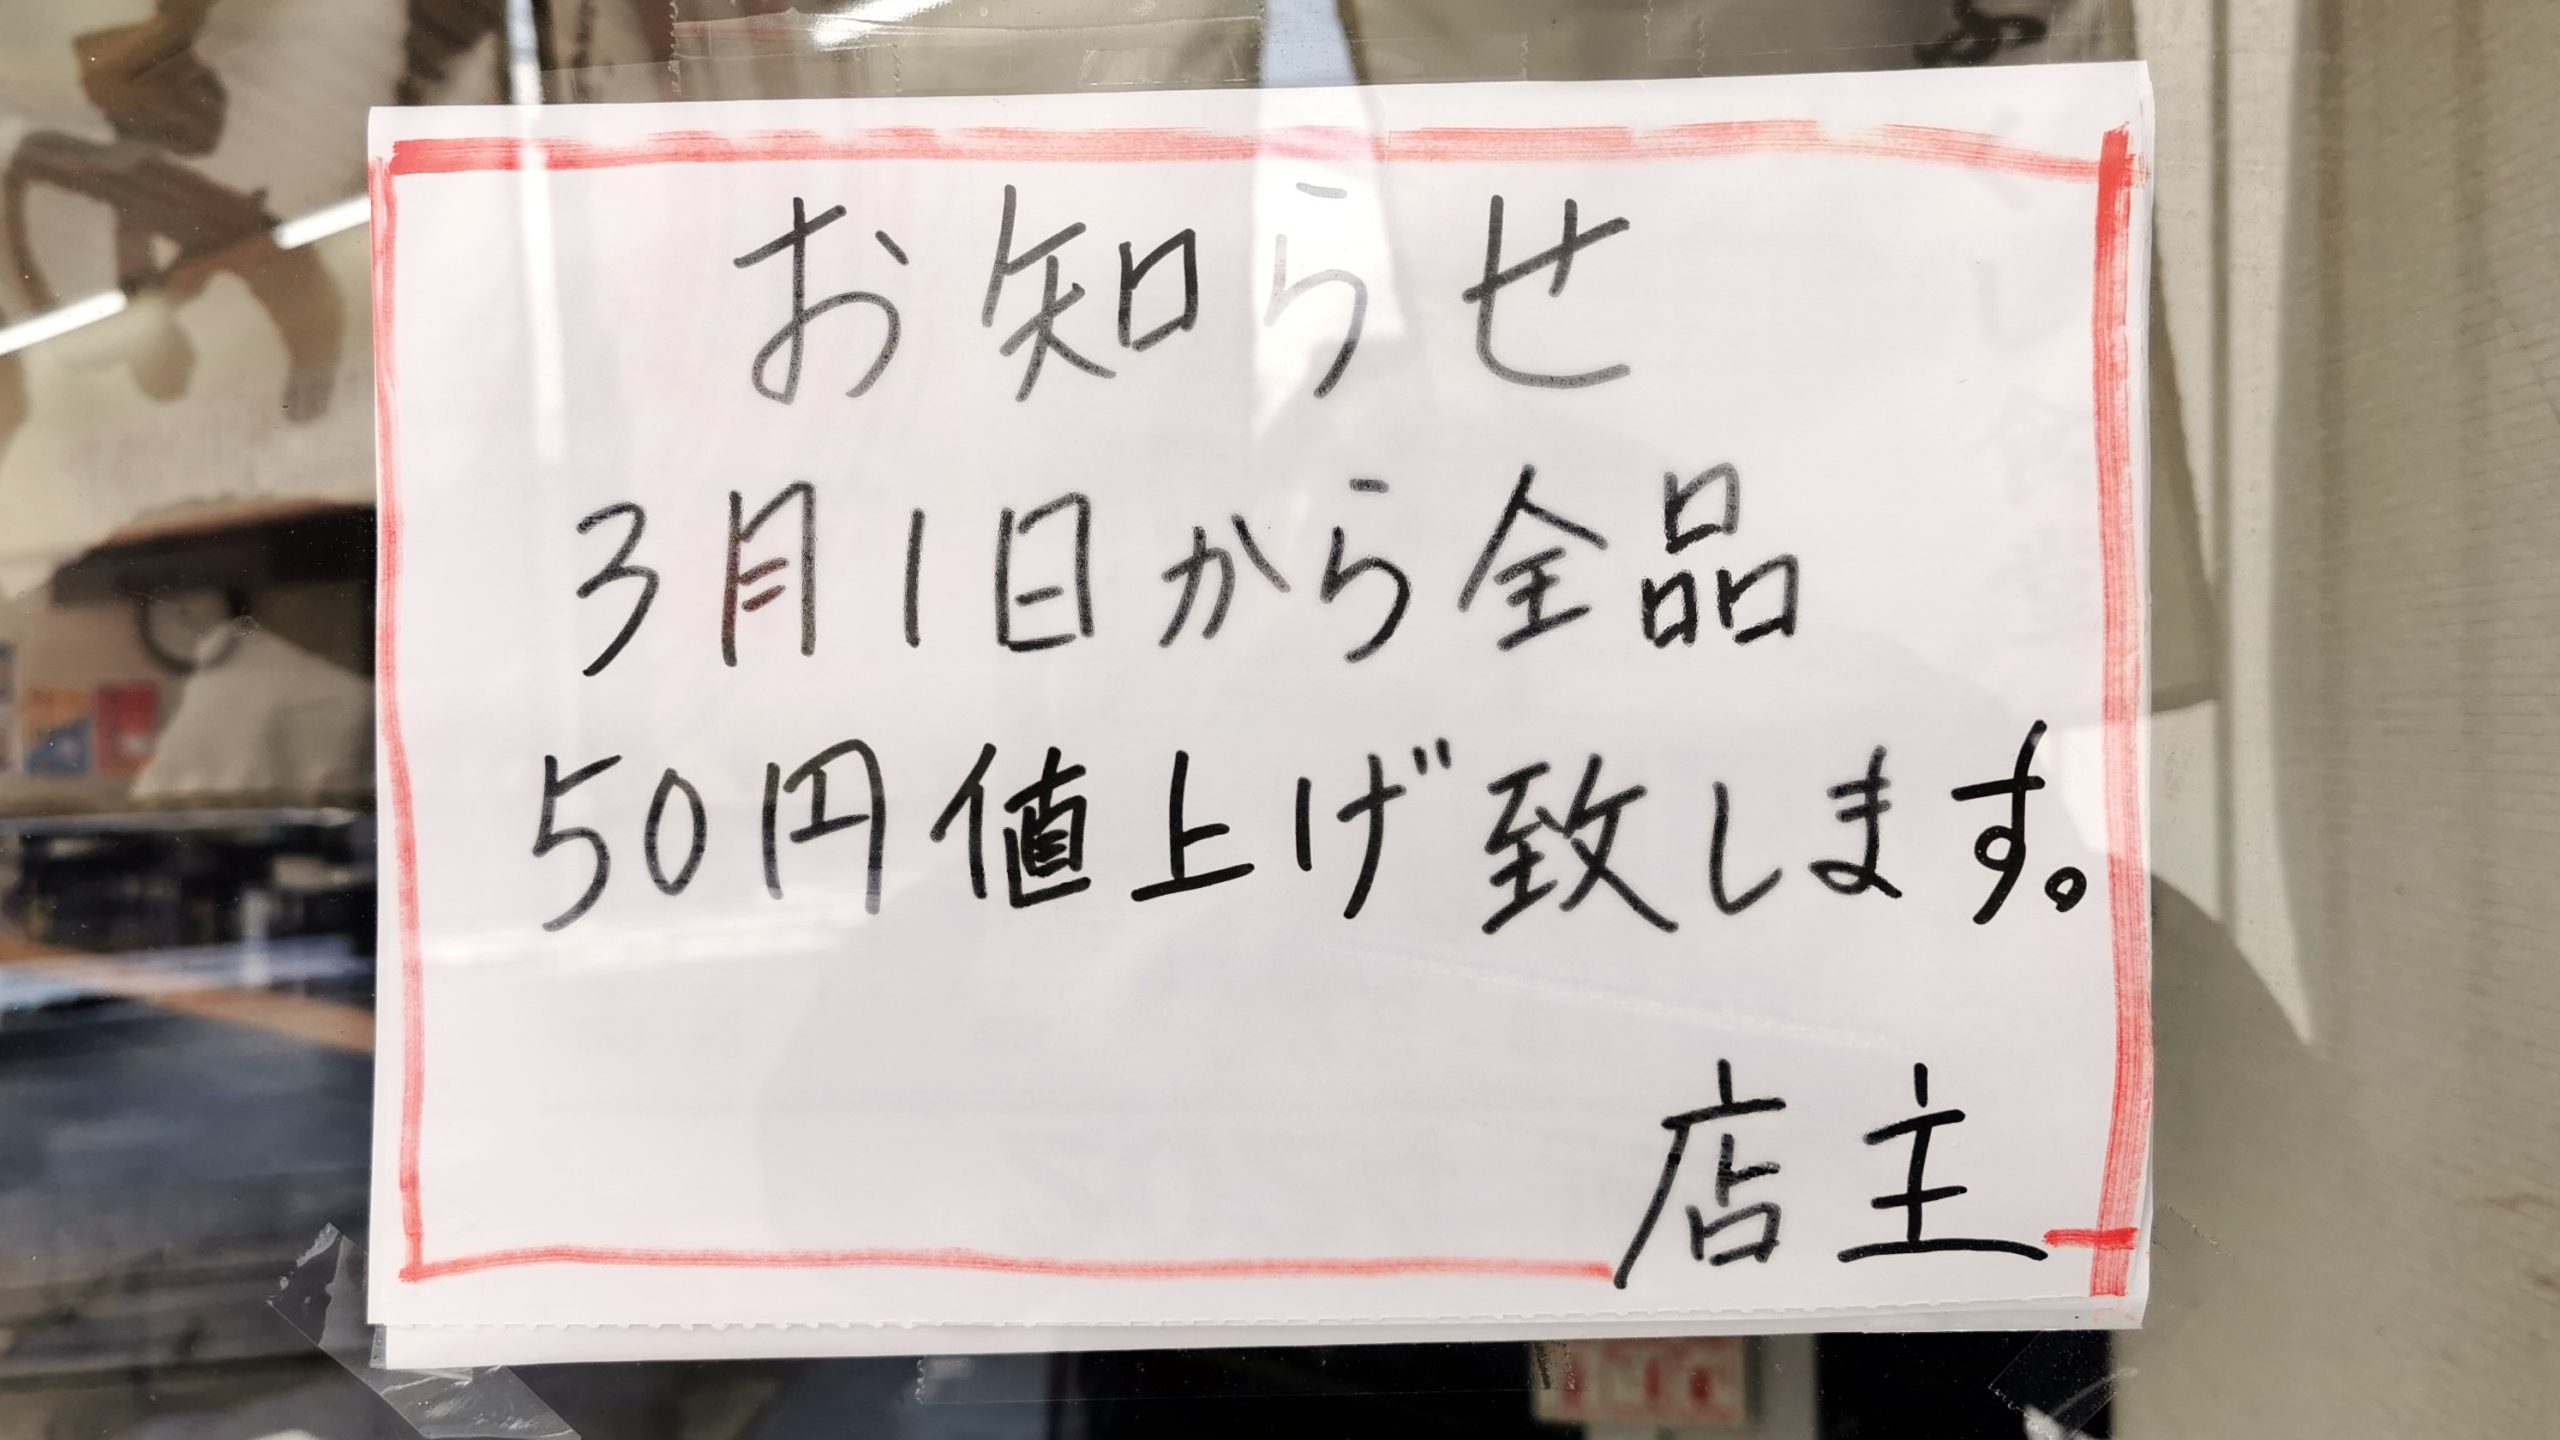 お知らせ
3月1日から全品
50円値上げ致します。
店主